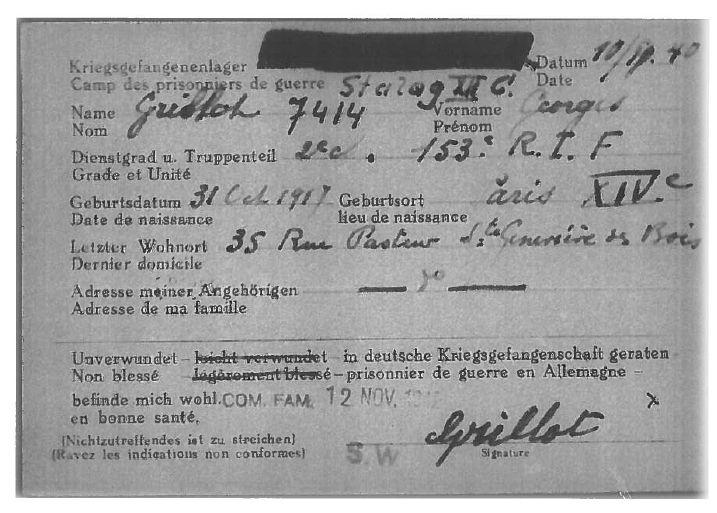 Kriegsgefangenenlager Datum 10/IX. 40
Camp des prisonniers de guerre Stalag XII C. Date
Name Grillot 7414 Vorname Georges
Nom Prénom
Dienstgrad u. Truppenteil 2e cl. 153.e R. I. F
Grade et Unité
Geburtsdatum 31 Oct 1917 Geburtsort aris XIV.e
Date de naissance lieu de naissance
Letzter Wohnort 35 Rue Pasteur Ste Geneviève des Bois
Dernier domicile
Adresse meiner Angehörigen — do —
Adresse de ma famille
Unverwundet – leicht verwundet – in deutsche Kriegsgefangenschaft geraten –
Non blessé légèrement blessé – prisonnier de guerre en Allemagne –
befinde mich wohl. COM. FAM. 12 NOV. x
en bonne santé.
(Nichtzutreffendes ist zu streichen) Grillot
(Rayez les indications non conformes) S.W Signature